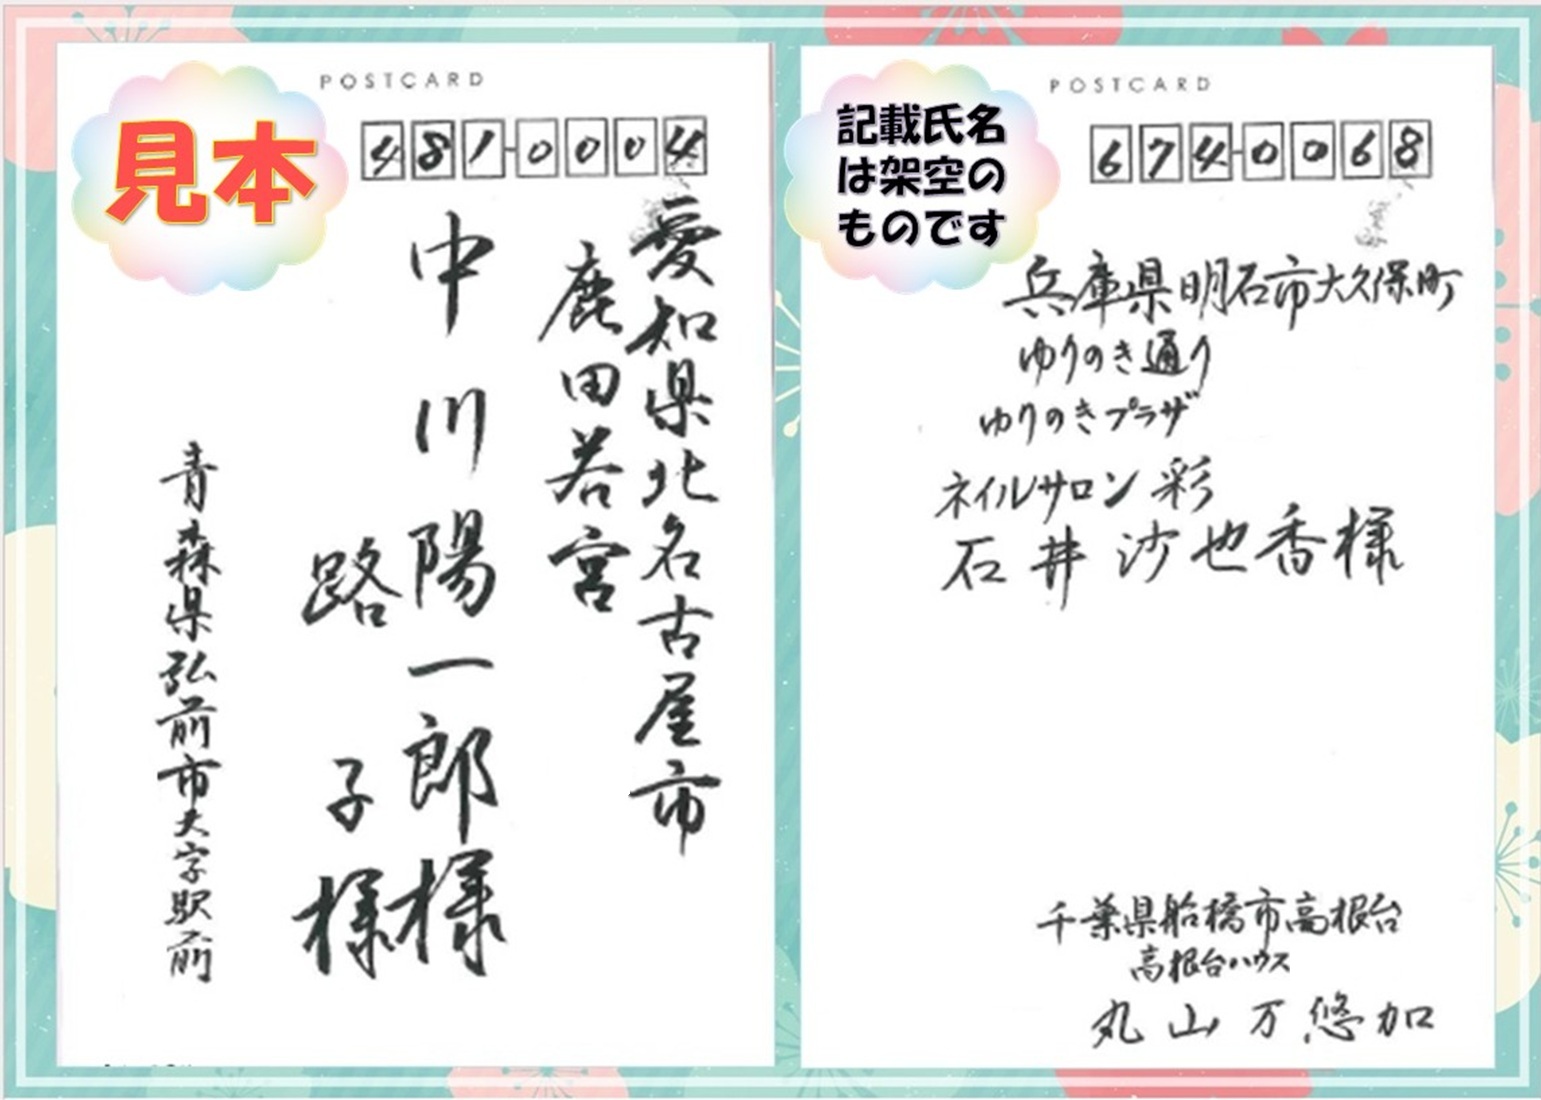 見本
POSTCARD
481-0004
愛知県北名古屋市
鹿田若宮
中川陽一郎様
路子様
青森県弘前市大字駅前
記載氏名
は架空の
ものです
POSTCARD
674-0068
兵庫県明石市大久保町
ゆりのき通り
ゆりのきプラザ
ネイルサロン 彩
石井沙也香様
千葉県船橋市高根台
高根台ハウス
丸山万悠加